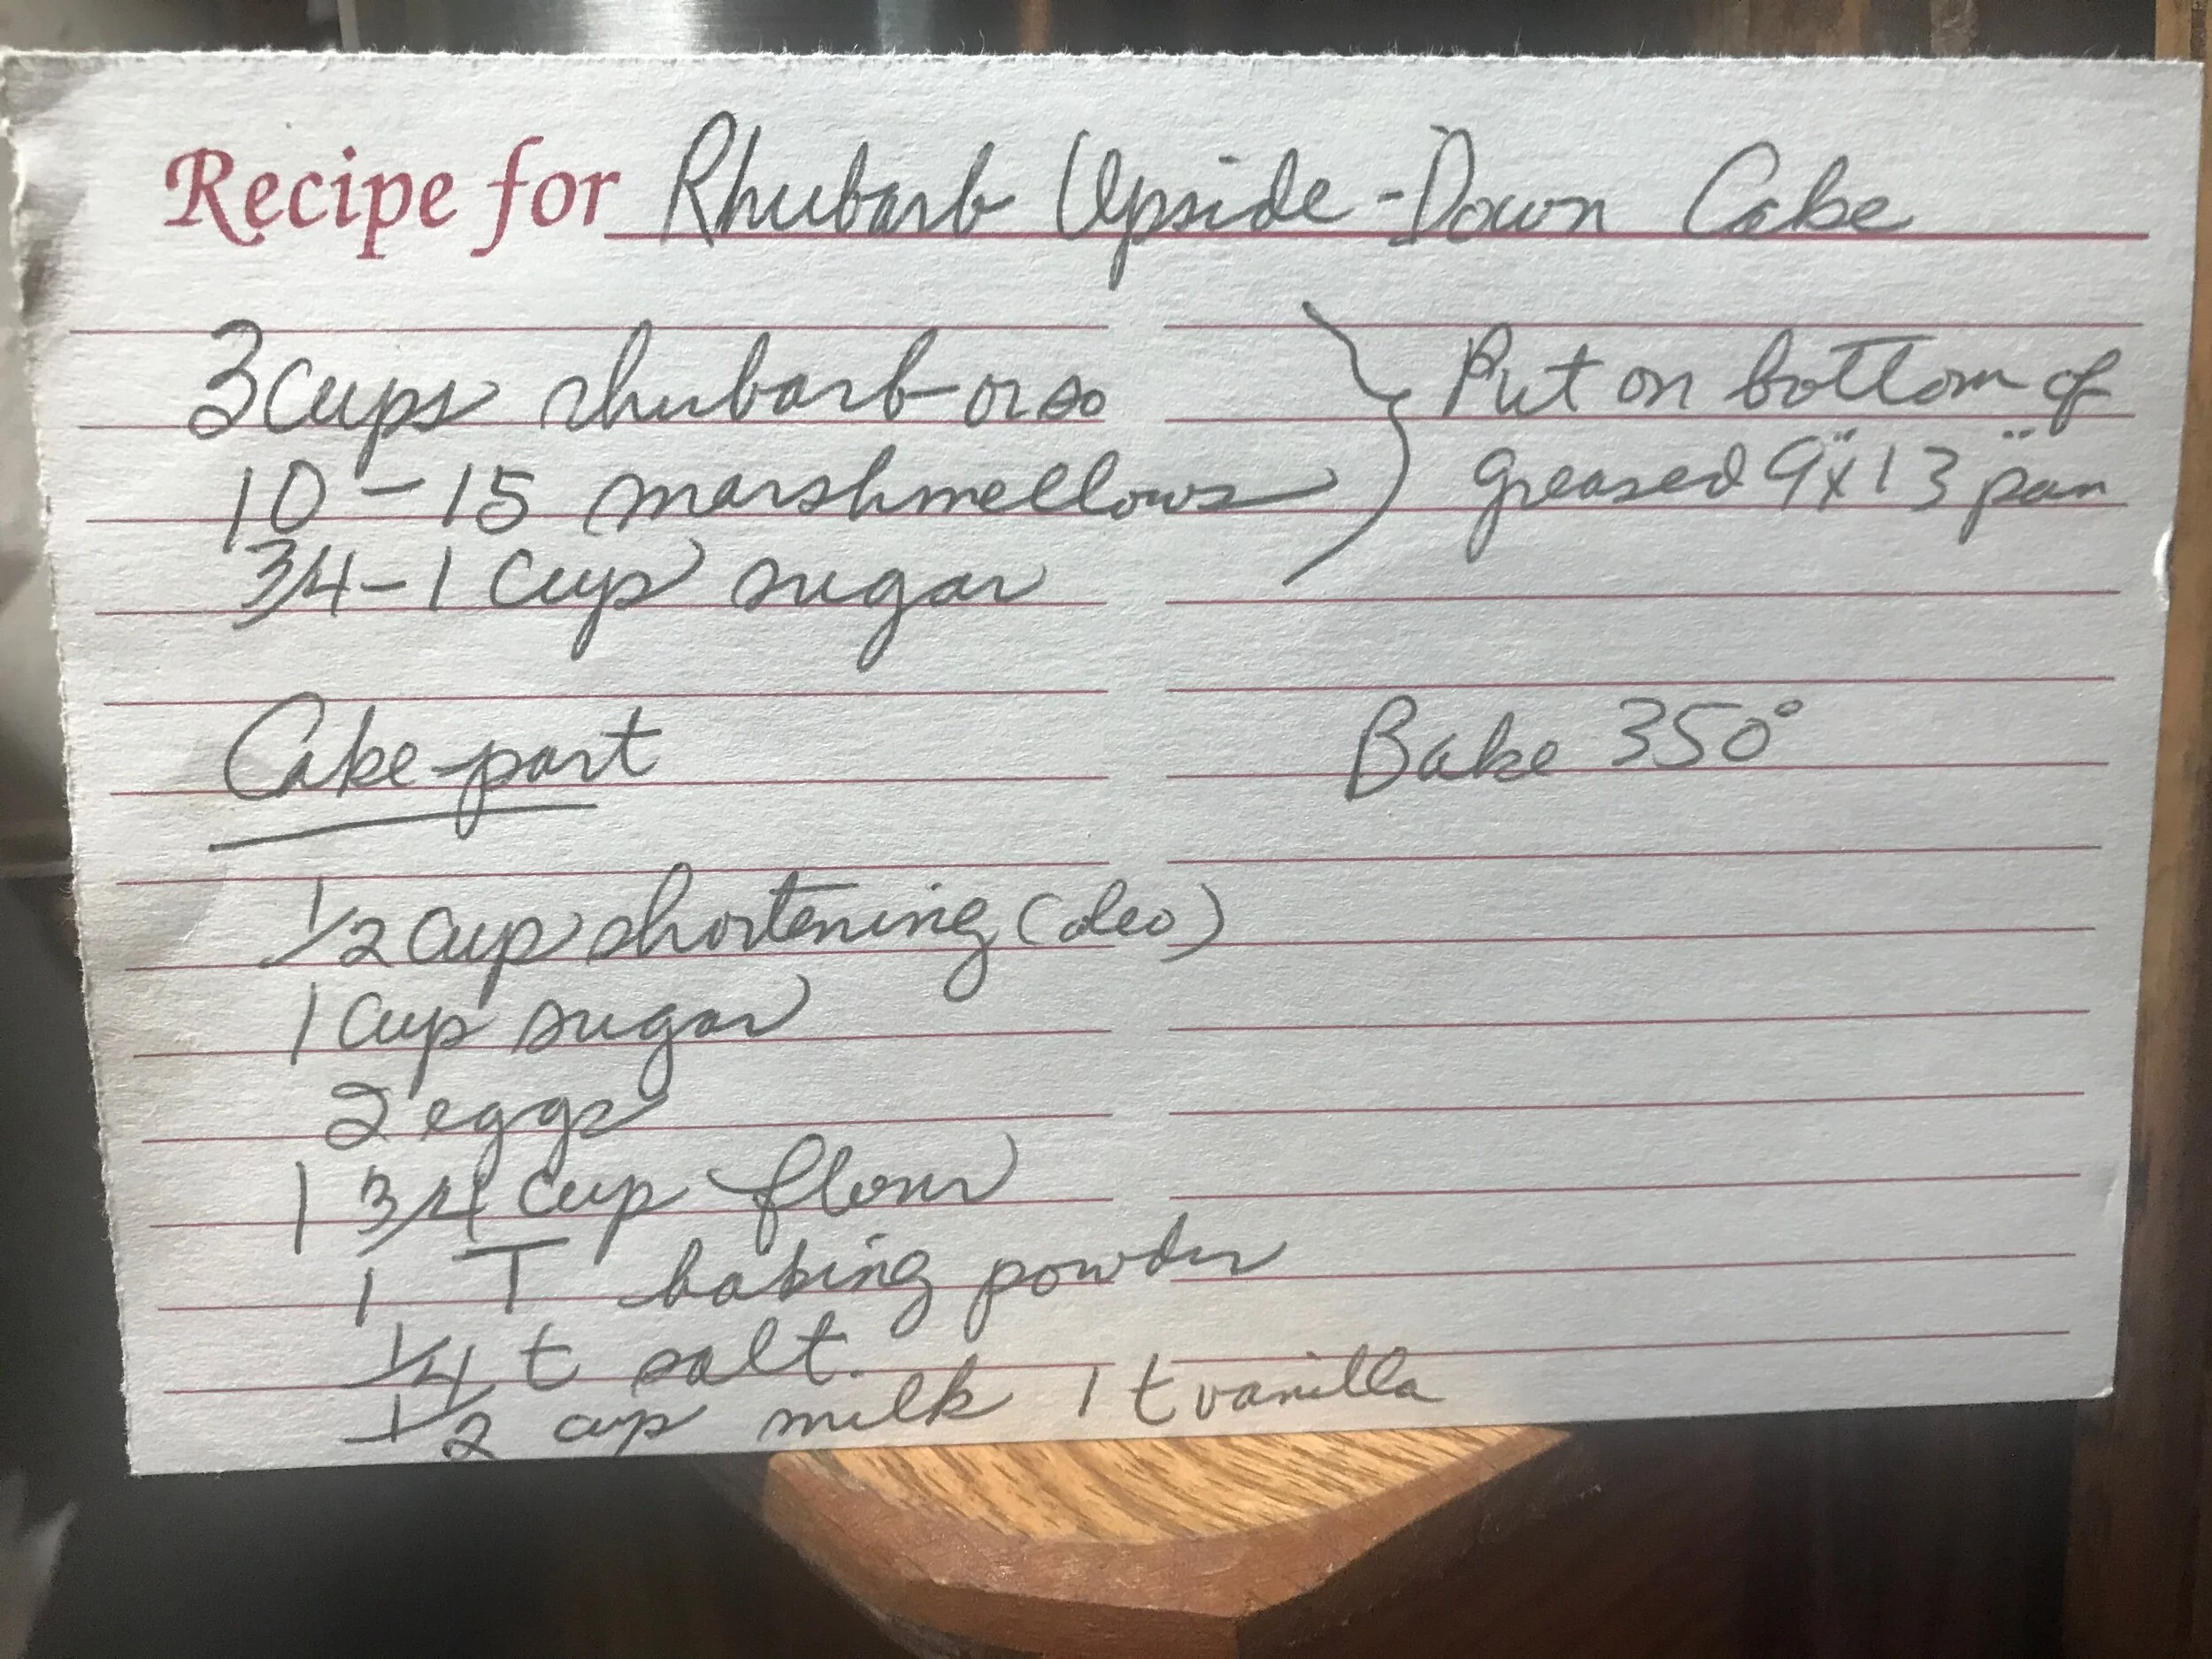 Recipe for Rhubarb Upside-Down Cake
3 cups rhubarb-or so
10-15 marshmellows
3/4-1 cup sugar
Put on bottom of
greased 9"x13" pan
Cake-part
Bake 350°
1/2 cup shortening (oleo)
1 cup sugar
2 eggs
1 3/4 cup flour
1 T baking powder
1/4 t salt.
1/2 cup milk 1 t vanilla